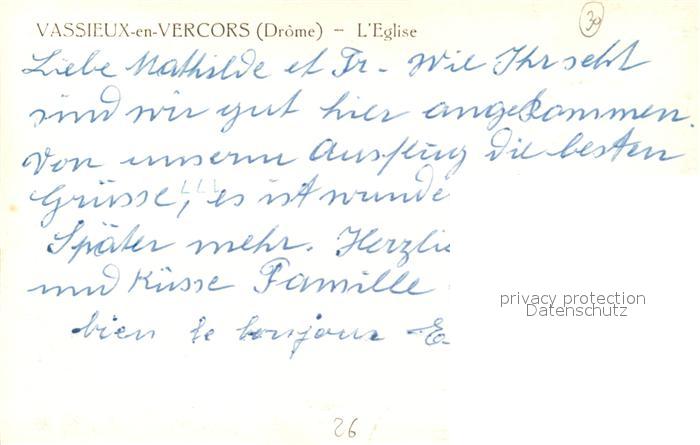 30
VASSIEUX-en-VERCORS (Drôme) - L'Eglise
Liebe Mathilde et Fr. - Wie Ihr seht
sind wir gut hier angekommen.
Von unserm Ausflug die besten
Grüsse, es ist wunde
Später mehr. Herzlic
und Küsse Famille
bien le bonjour E
privacy protection
Datenschutz
26